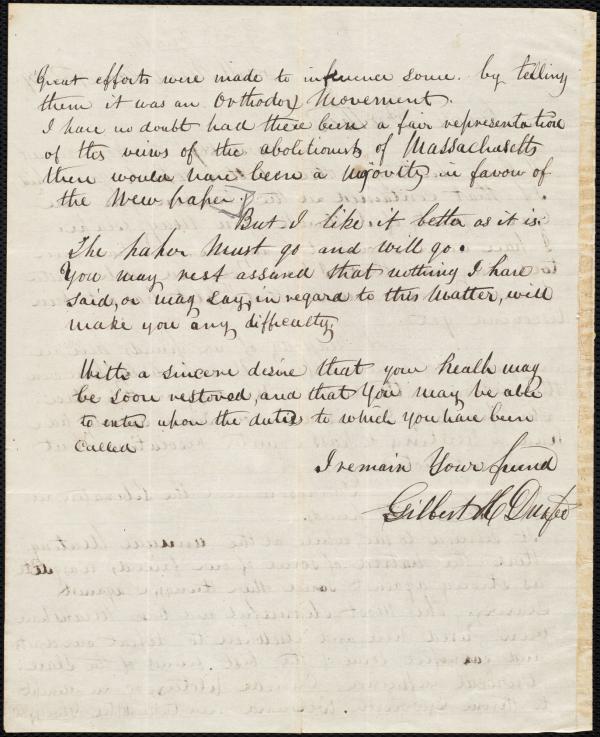 Great efforts were made to influence some. by telling
them it was an Orthodox Movement.
I have no doubt had there been a fair representation
of the views of the abolitionists of Massachusetts
there would have been a majority in favour of
the New paper.
But I like it better as it is.
The paper Must go and will go.
You may rest assured that nothing I have
said, or may say, in regard to this Matter, will
make you any difficulty.
With a sincere desire that your health may
be soon restored, and that You may be able
to enter upon the duties to which you have been
Called
I remain Your friend
Gilbert H Durfee